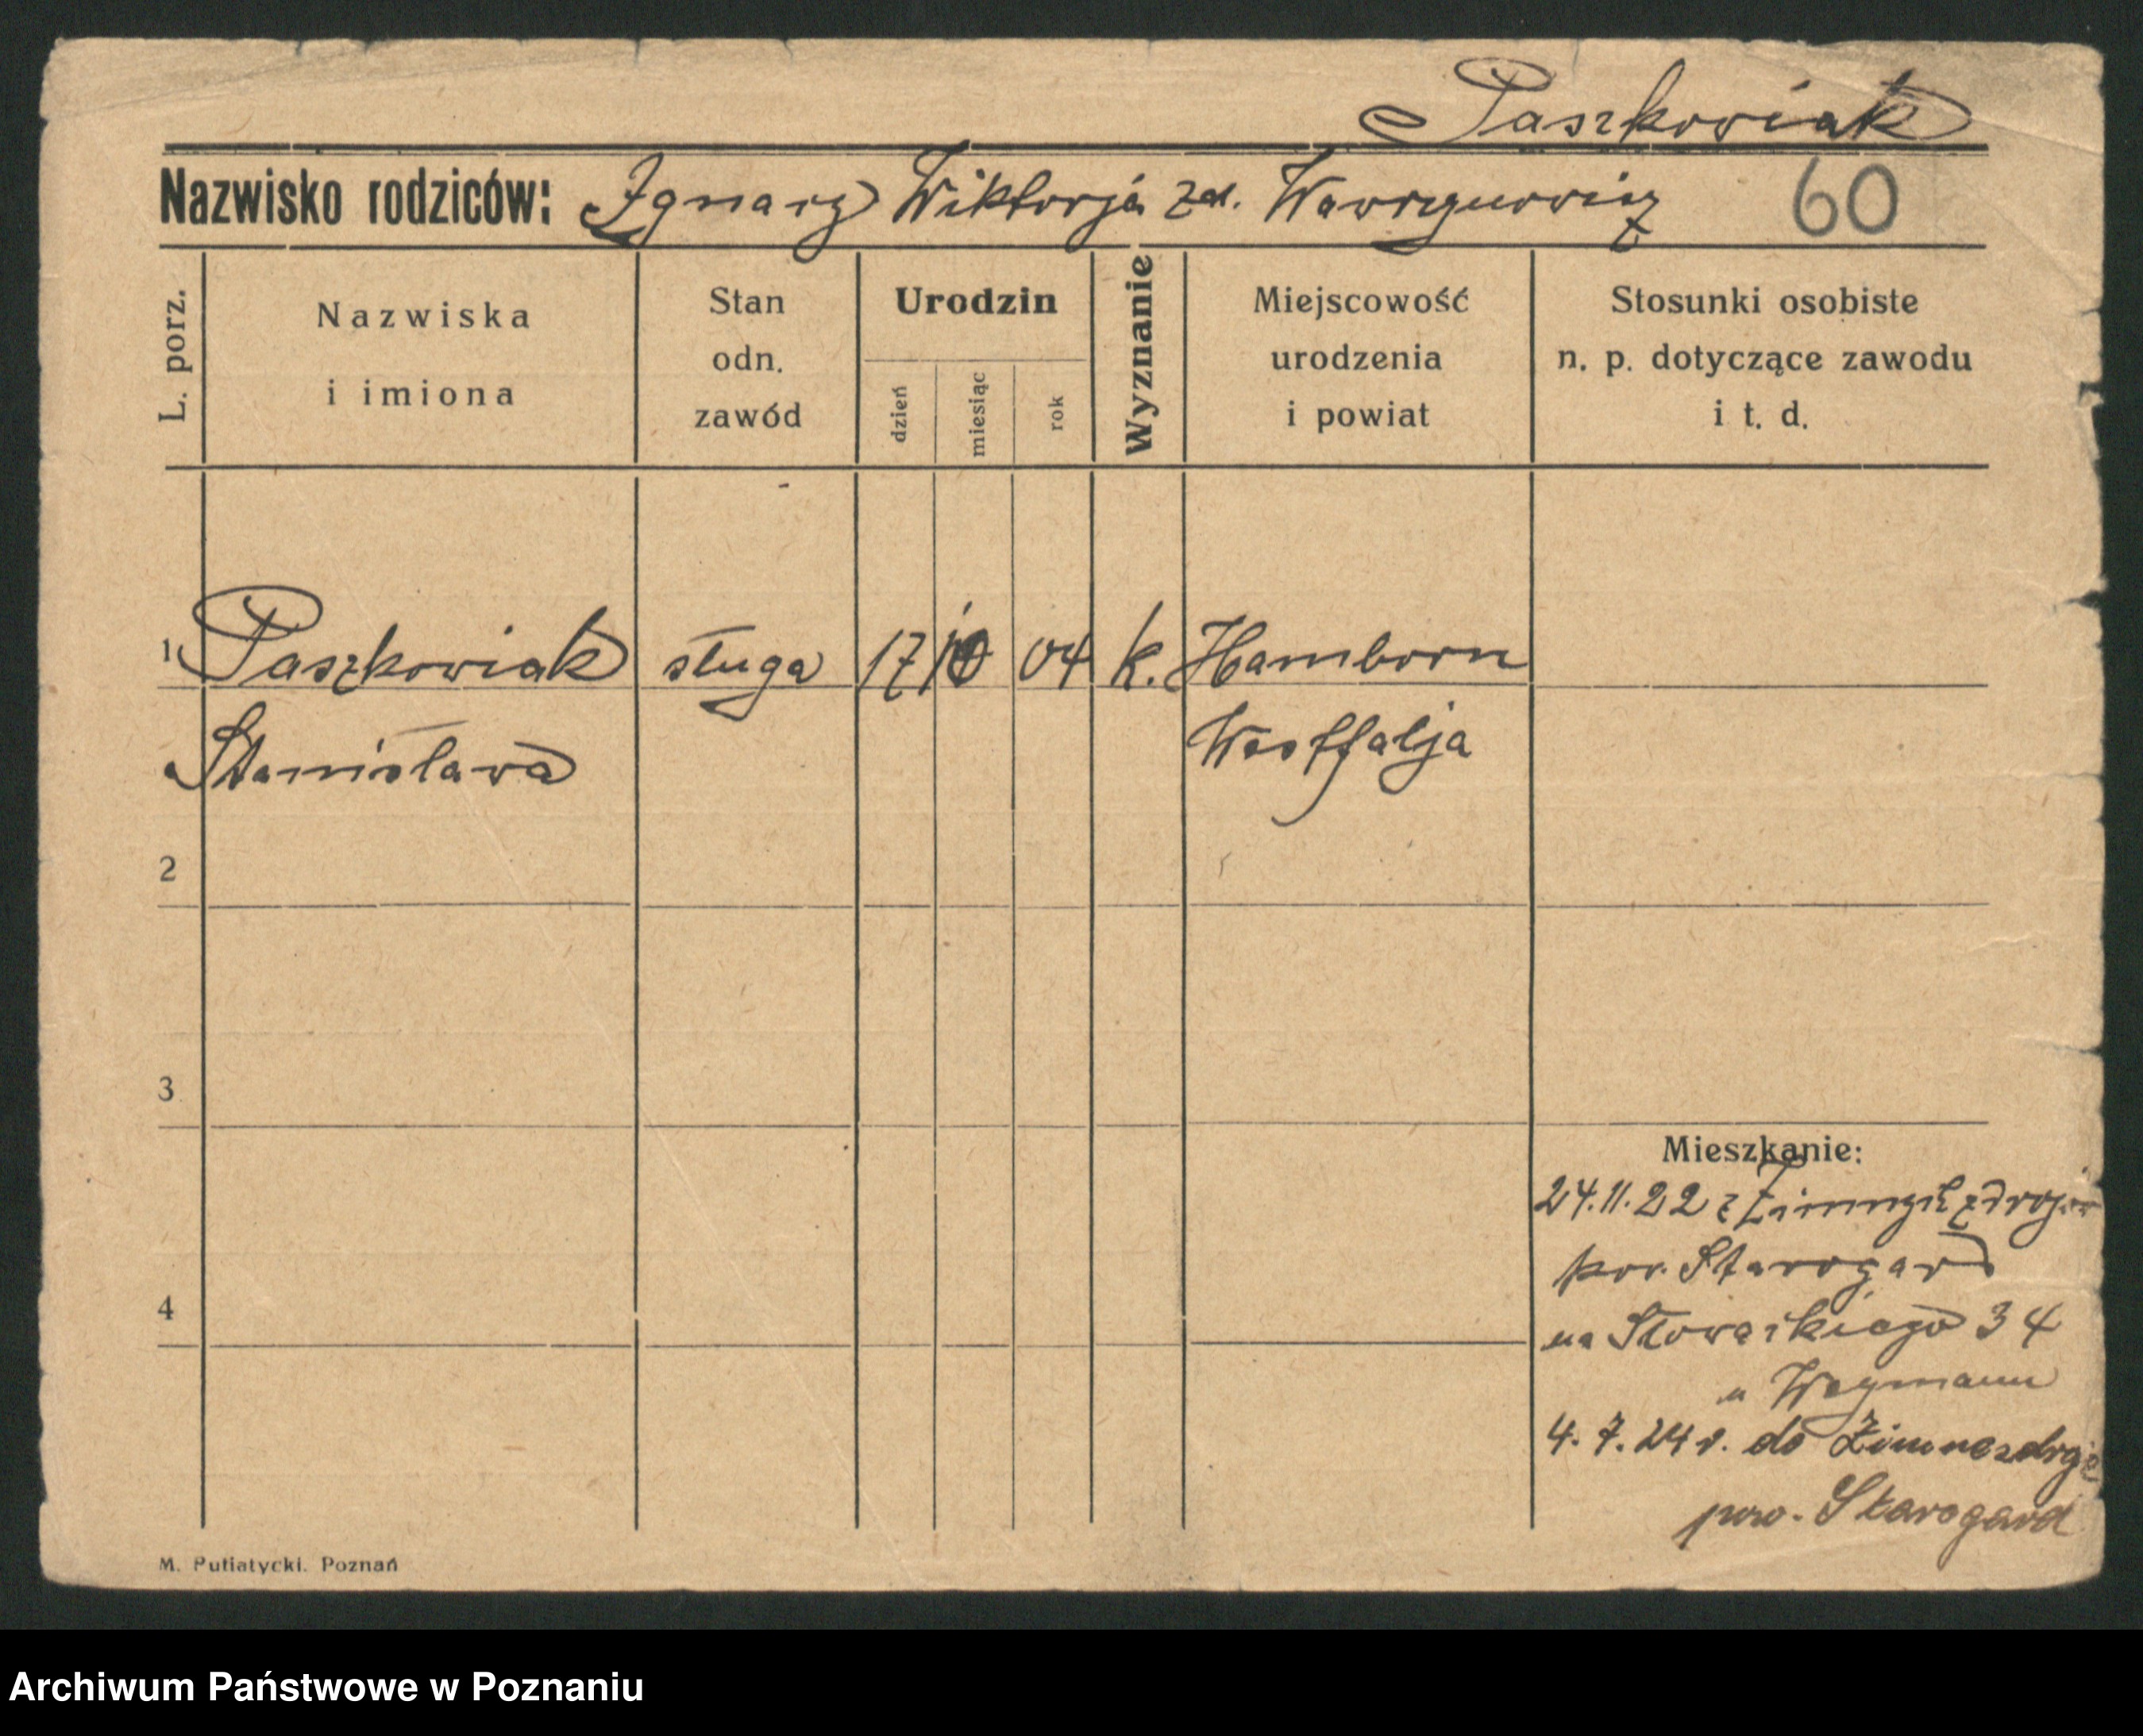 Paszkowiak
Nazwisko rodziców: Ignacy Wiktorja zd. Wawrzynowicz 60
L. porz.
Nazwiska
i imiona
Stan
odn.
zawód
Urodzin
dzień
miesiąc
rok
Wyznanie
Miejscowość
urodzenia
i powiat
Stosunki osobiste
n. p. dotyczące zawodu
i t. d.
1 Paszkowiak sługa 17 10 04 k. Hamborn
Stanisława Westfalja
2
3
Mieszkanie:
24.11.22 z Zimnych zdroji
pow. Starogard
4
na Słowackiego 34
u Wegmann
4. 7. 24 r. do Zimnezdroje
pow. Starogard
M. Putiatycki. Poznań
Archiwum Państwowe w Poznaniu